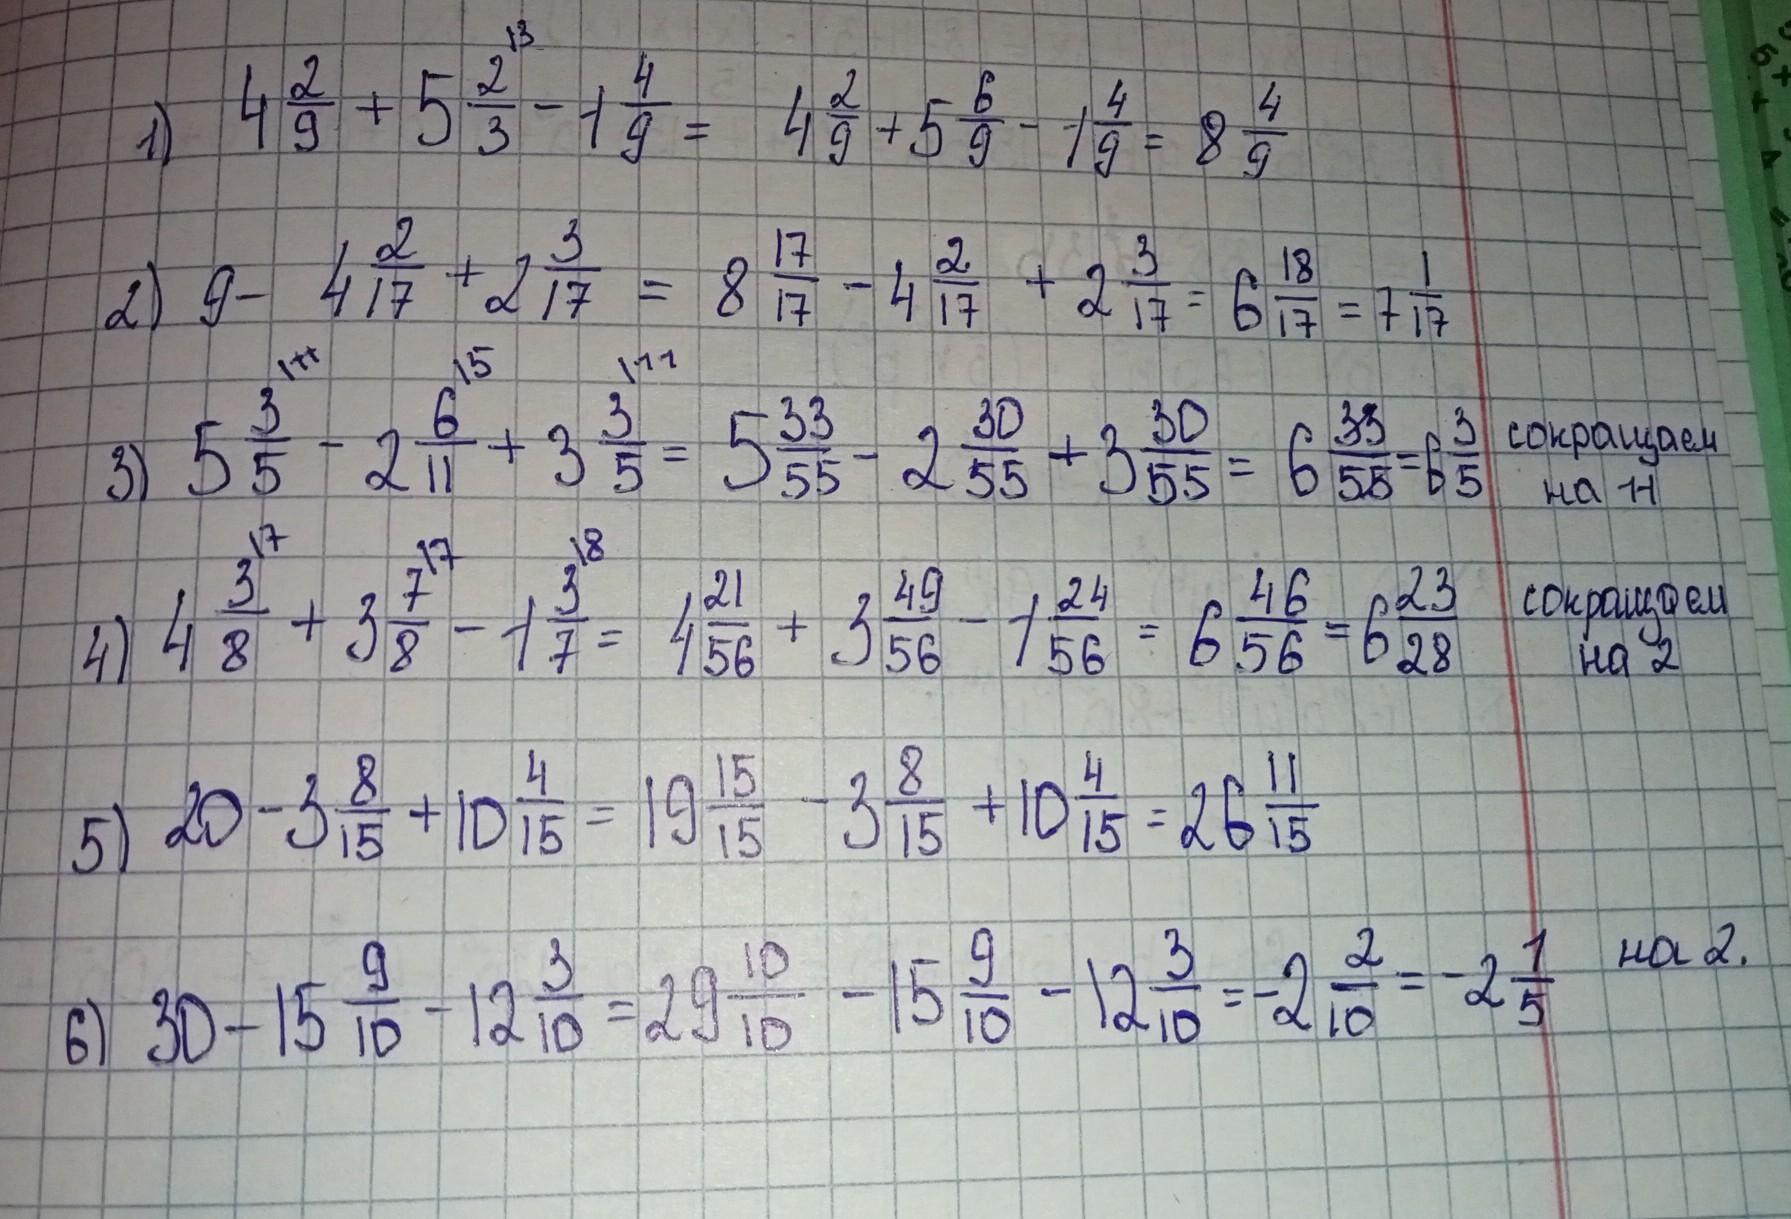 1) 4 2/9 + 5 2/3 \3 - 1 4/9 = 4 2/9 + 5 6/9 - 1 4/9 = 8 4/9
2) 9 - 4 2/17 + 2 3/17 = 8 17/17 - 4 2/17 + 2 3/17 = 6 18/17 = 7 1/17
3) 5 3/5 \11 - 2 6/11 \5 + 3 3/5 \11 = 5 33/55 - 2 30/55 + 3 30/55 = 6 33/55 = 6 3/5 сокращаем на 11
4) 4 3/8 \7 + 3 7/8 \7 - 1 3/7 \8 = 4 21/56 + 3 49/56 - 1 24/56 = 6 46/56 = 6 23/28 сокращаем на 2
5) 20 - 3 8/15 + 10 4/15 = 19 15/15 - 3 8/15 + 10 4/15 = 26 11/15
6) 30 - 15 9/10 - 12 3/10 = 29 10/10 - 15 9/10 - 12 3/10 = -2 2/10 = -2 1/5 на 2.